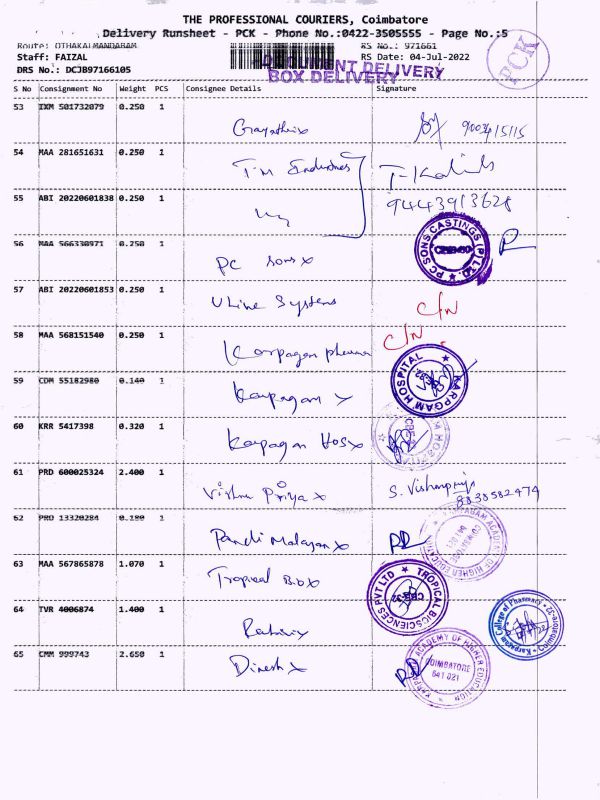 THE PROFESSIONAL COURIERS, Coimbatore
Delivery Runsheet - PCK - Phone No.:0422-3505555 - Page No.:5
Route: OTHAKALMANDABAM
RS No.: 971661
Staff: FAIZAL
RS Date: 04-Jul-2022
DRS No.: DCJB97166105
DOCUMENT DELIVERY
BOX DELIVERY
PCK
S No Consignment No Weight PCS Consignee Details Signature
53 IXM 501732079 0.250 1
Gayathri x 9003415115
54 MAA 281651631 0.250 1
T.M Industries
55 ABI 20220601838 0.250 1
9443913628
56 MAA 566330971 0.250 1
PC Sons x
PC SONS CASTINGS (P) LTD
57 ABI 20220601853 0.250 1
U Line Systems C/N
58 MAA 568151540 0.250 1
Karpagam pharma C/N
59 CDM 55182980 0.140 1
Karpagam x
KARPGAM HOSPITAL
60 KRR 5417398 0.320 1
Karpagam Hos x
61 PRD 600025324 2.400 1
Vishnu Priya x S. Vishnupriya
8838582474
62 PRO 13320284 0.180 1
KARPAGAM ACADEMY OF HIGHER EDUCATION
63 MAA 567865878 1.070 1
Tropical Bio x
TROPICAL BIOSCIENCES PVT LTD
CBE-32
64 TVR 4006874 1.400 1
Karpagam College of Pharmacy
Coimbatore-32
65 CMM 999743 2.650 1
Dinesh x
KARPAGAM ACADEMY OF HIGHER EDUCATION
COIMBATORE
641 021